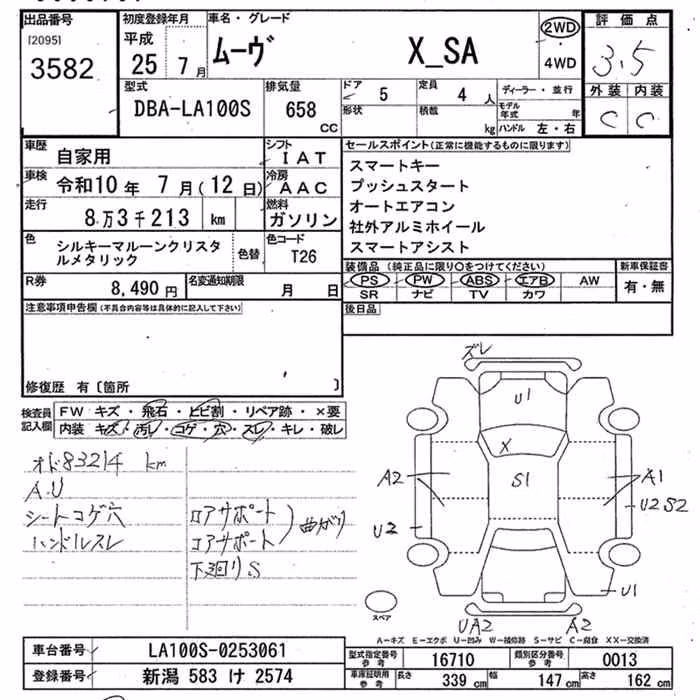 出品番号
[2095]
3582
初度登録年月
平成
25 7月
車名・グレード
ムーヴ X_SA
2WD
4WD
評価点
3.5
外装 内装
C C
型式
DBA-LA100S
排気量
658
cc
ドア 5
定員 4 人
形状
積載 kg
ディーラー・並行
モデル年式 年
ハンドル 左・右
車歴
自家用
シフト
I A T
車検
令和10年 7月(12日)
冷房
A A C
走行
8万3千213 km
燃料
ガソリン
色
シルキーマルーンクリスタ
ルメタリック
色替
色コード
T26
R券
8,490円
名変通知期限
月 日
セールスポイント(正常に機能するものに限ります)
スマートキー
プッシュスタート
オートエアコン
社外アルミホイール
スマートアシスト
装備品 (純正品に限り○をつけてください)
新車保証書
PS PW ABS エアB AW
有・無
SR ナビ TV カワ
後日品
注意事項申告欄(不具合内容等は具体的に記入して下さい)
修復歴 有〔箇所 〕
検査員
記入欄
FW キズ・飛石・ヒビ割・リペア跡・×要
内装 キズ・汚レ・コゲ・穴・スレ・キレ・破レ
オド83214 km
A.U
シートコゲ穴
ハンドルスレ
ロアサポート
コアサポート
曲がり
下廻りS
ズレ
U1
X
S1
A2
A1
U2
U2 S2
U1
スペア
UA2
A2
A-キズ E-エクボ U-凹み W-補修跡 S-サビ C-腐食 XX-交換済
車台番号
LA100S-0253061
登録番号
新潟 583 け 2574
型式指定番号
参考
16710
類別区分番号
参考
0013
車庫証明用
参考
長さ 339 cm
幅 147 cm
高さ 162 cm